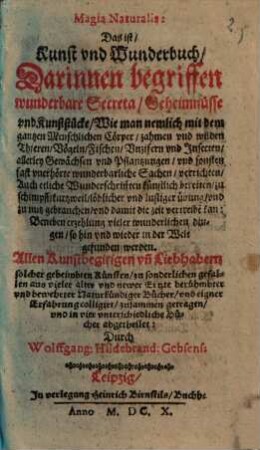 Magia Naturalis:
Das ist/
Kunst vnd Wunderbuch/
Darinnen begriffen
wunderbare Secreta/ Geheimnüsse
vnd Kunststücke/ Wie man nemlich mit dem
gantzen Menschlichen Cörper/ zahmen vnd wilden
Thieren/ Vögeln/ Fischen/ Vnzifern vnd Insecten/
allerley Gewächsen vnd Pflantzungen/ vnd sonsten
fast vnerhörte wunderbarliche Sachen/ verrichten/
Auch etliche Wunderschrifften künstlich bereiten/ zu
schimpff/ kurtzweil/ löblicher vnd lustiger übung/ vnd
zu nutz gebrauchen/ vnd damit die zeit vertreibē kan:
Beneben erzehlung vieler wunderlichen din-
gen/ so hin vnd wieder in der Welt
gefunden werden.
Allen Kunstbegirigen vn̄ Liebhabern
solcher geheimbten Künsten/ zu sonderlichen gefal-
len aus vieler alten vnd newer Ertzte berühmbter
vnd bewehrter Naturkündiger Bücher/ vnd eigner
Erfahrung colligirt/ zusammen getragen/
vnd in vier vnterschiedliche Bü-
cher abgetheilet:
Durch
Wolffgang: Hildebrand: Gebsens:
Leipzig/
In verlegung Heinrich Birnstils/ Buchh:
Anno M. DC. X.